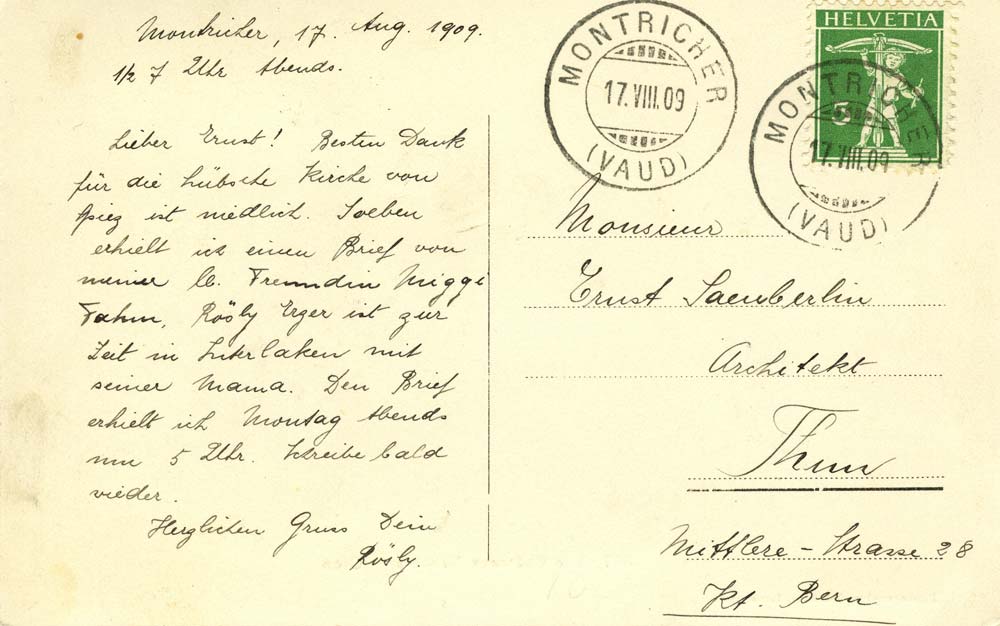 Montricher, 17. Aug. 1909.
1/2 7 Uhr Abends.
Lieber Ernst! Besten Dank
für die hübsche Kirche von
Spiez ist niedlich. Soeben
erhielt ich einen Brief von
meiner lb. Freundin Miggi
Fahm, Rösly Erger ist zur
Zeit in Interlaken mit
seiner Mama. Den Brief
erhielt ich Montag Abends
um 5 Uhr. Schreibe bald
wieder.
Herzlichen Gruss Dein
Rösly.
MONTRICHER
17.VIII.09
(VAUD)
HELVETIA
5
MONTRICHER
17.VIII.09
(VAUD)
Monsieur
Ernst Saemberlin
Architekt
Thun
Mittlere-Strasse 28
Kt. Bern